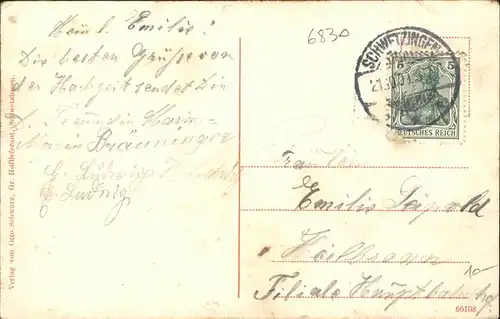 Mein l. Emilie!
Die besten Grüße von
der Hochzeit sendet Dir
Freundin Marie
Bräuninger
G. Ludwig
E. Ludwig
6830
SCHWETZINGEN
5 5
DEUTSCHES REICH
Fräulein
Emilie Leipold
Heilbronn
Filiale Hauptbahnhof
10-
Verlag von Otto Schwarz, Gr. Hoflieferant, Schwetzingen.
66108